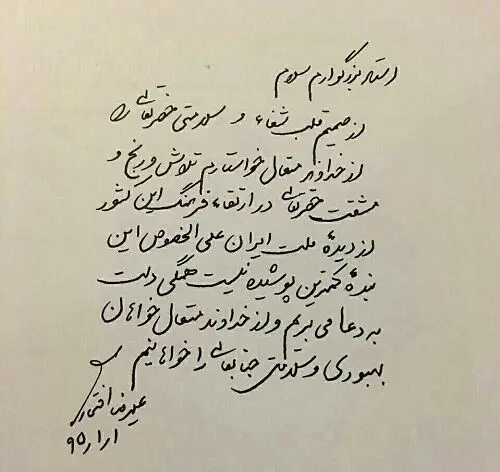 استاد بزرگوارم سلام
از صمیم قلب شفاء و سلامتی حضرتعالی را
از خداوند متعال خواستارم تلاش و رنج و
مشقت حضرتعالی در ارتقاء فرهنگ این کشور
از دیدهٔ ملت ایران علی الخصوص این
بندهٔ کمترین پوشیده نیست همگی دست
به دعا می بریم و از خداوند متعال خواهان
بهبودی و سلامتی جنابعالی را خواهانیم
علیرضا افتخاری
۱ر۱ر۹۵